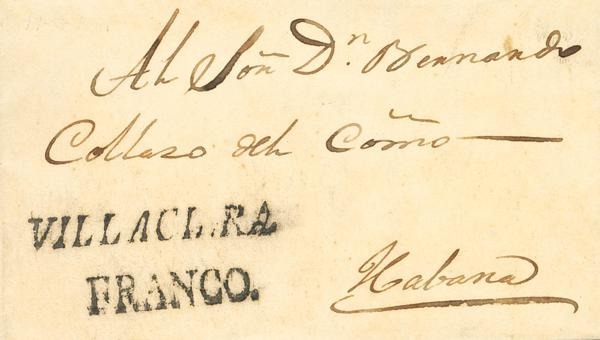 Al Señ Dn. Bernardo
Collazo del Com̃o
Habana
VILLACLARA
FRANCO.